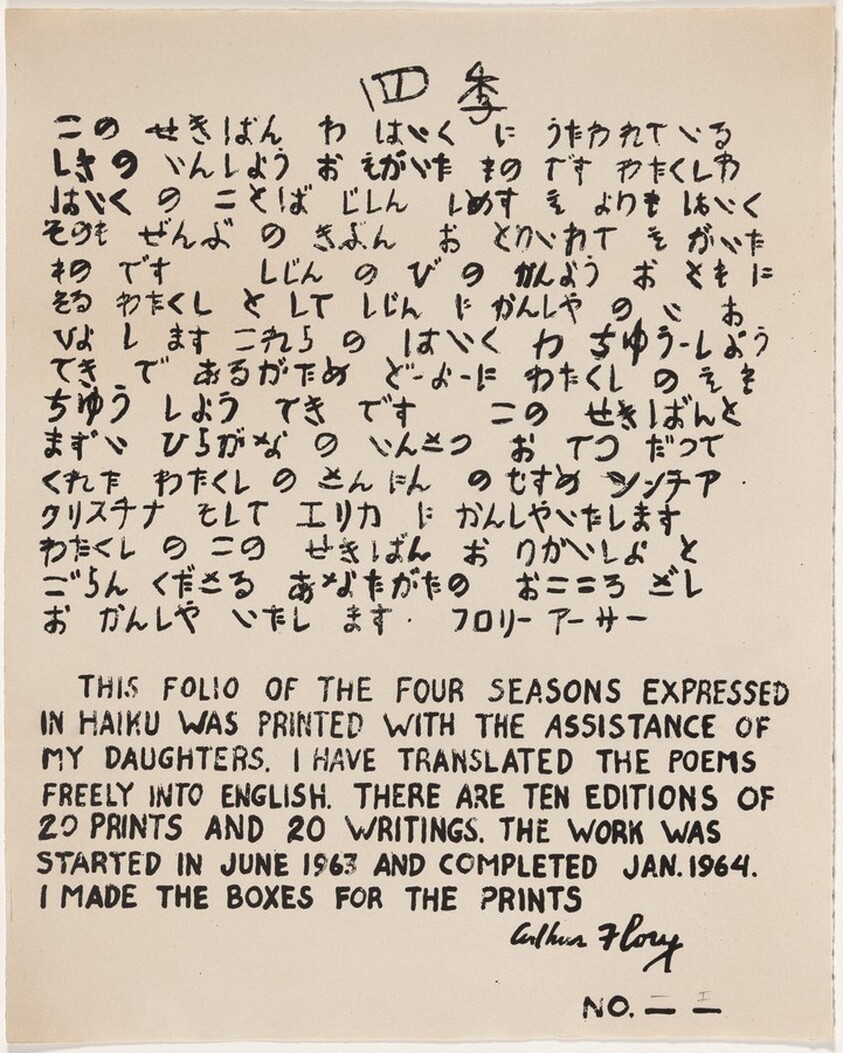 四季
この せきばん わ はいく に うたわれて いる
しきの いんしよう お えがいた もの です わたくしわ
はいく の ことば じしん しめす え よりも はいく
そのも ぜんぶ の きぶん お とりいれて え がいた
もの です しじん の び の かんよう お ともに
する わたくし と して しじん に かんしや の い お
ひよ し ます これら の はいく わ ちゆう-しよう
てき で あるがため どーよーに わたくし の え も
ちゆう しよう てき です この せきばんと
まずい ひらがな の いんさつ お てつ だつて
くれた わたくし の さんにん のむすめ シンチア
クリスチナ そして エリカ に かんしやいたします
わたくし の この せきばん お りかいしよ と
ごらん くださる あなたがたの おこころ ざし
お かんしや いたし ます. フロリー アーサー
THIS FOLIO OF THE FOUR SEASONS EXPRESSED
IN HAIKU WAS PRINTED WITH THE ASSISTANCE OF
MY DAUGHTERS. I HAVE TRANSLATED THE POEMS
FREELY INTO ENGLISH. THERE ARE TEN EDITIONS OF
20 PRINTS AND 20 WRITINGS. THE WORK WAS
STARTED IN JUNE 1963 AND COMPLETED JAN. 1964.
I MADE THE BOXES FOR THE PRINTS
Arthur Flory
NO. 二 一